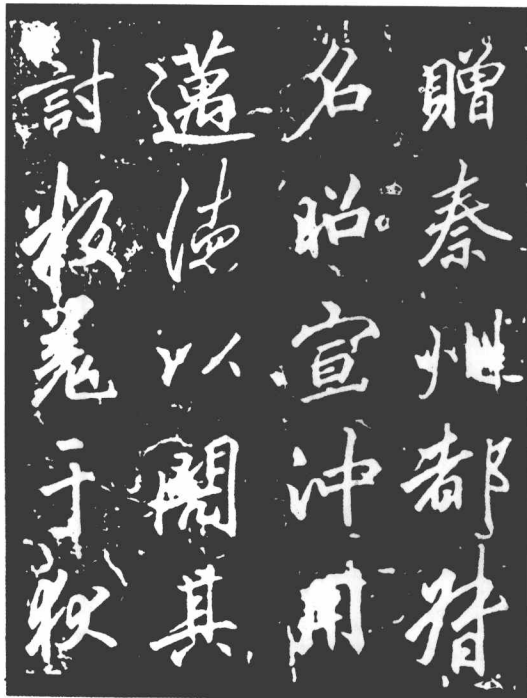 贈秦州都督
名昭宣沖用
邁德以其
討叛羌于狄